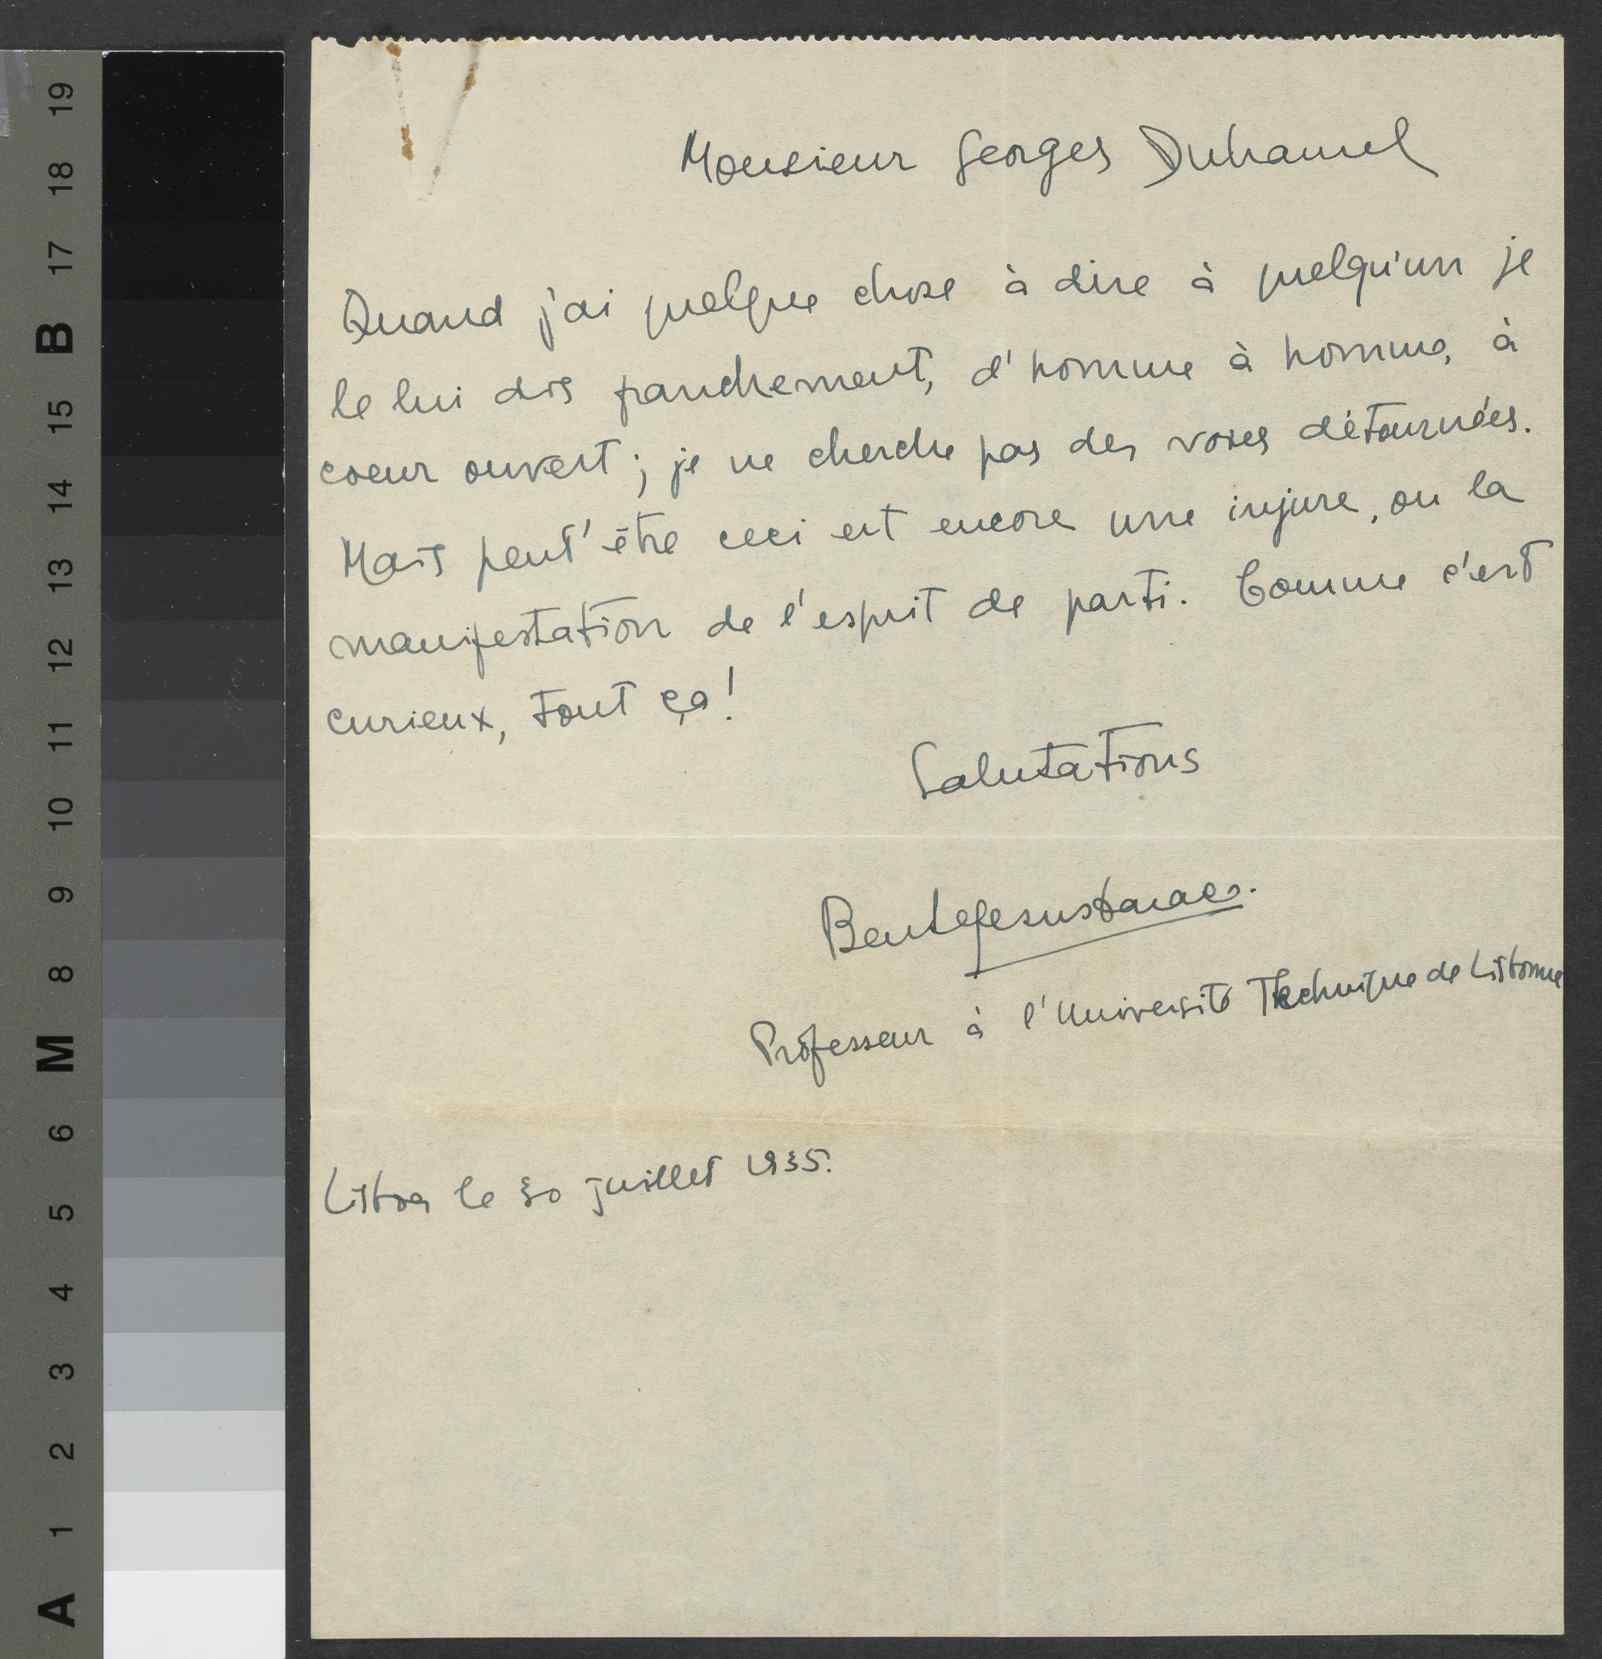 Monsieur Georges Duhamel
Quand j'ai quelque chose à dire à quelqu'un je
le lui dis franchement, d'homme à homme, à
coeur ouvert; je ne cherche pas des voies détournées.
Mais peut'être ceci est encore une injure, ou la
manifestation de l'esprit de parti. Comme c'est
curieux, tout ça!
Salutations
Bento de Jesus Caraça.
Professeur à l'Université Technique de Lisbonne
Lisboa le 30 juillet 1935.
19
18
17
B
15
14
13
12
11
10
9
8
M
6
5
4
3
2
1
A